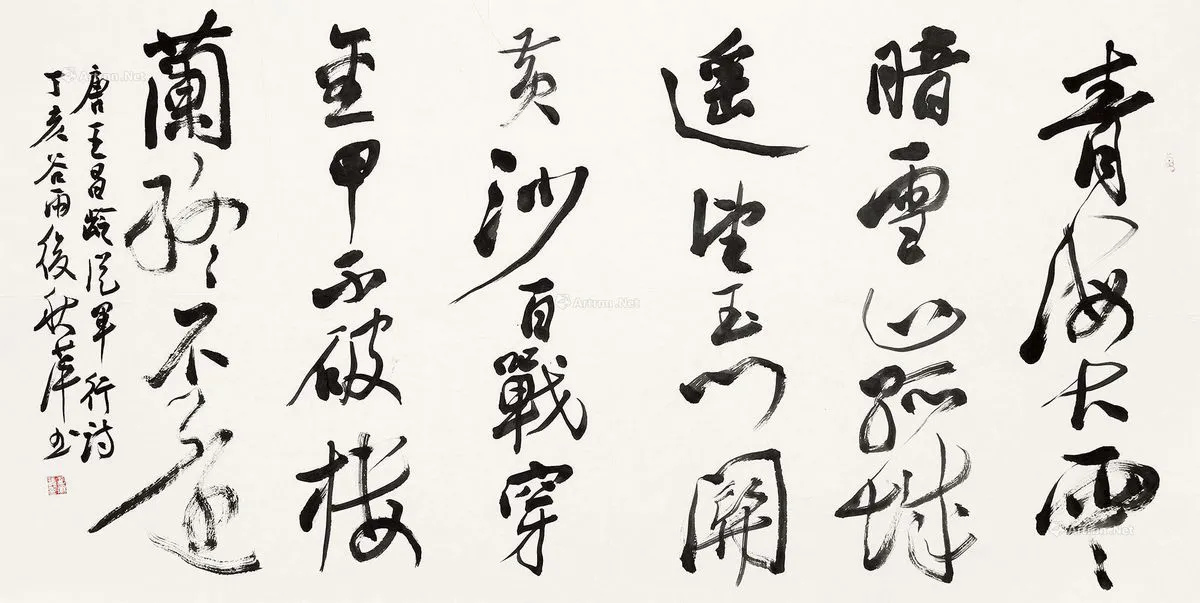 青海長雲
暗雪山孤城
遥望玉門關
黄沙百戰穿
金甲不破樓
蘭終不還
唐王昌齡從軍行詩
丁亥谷雨後秋萍書
Artron.Net